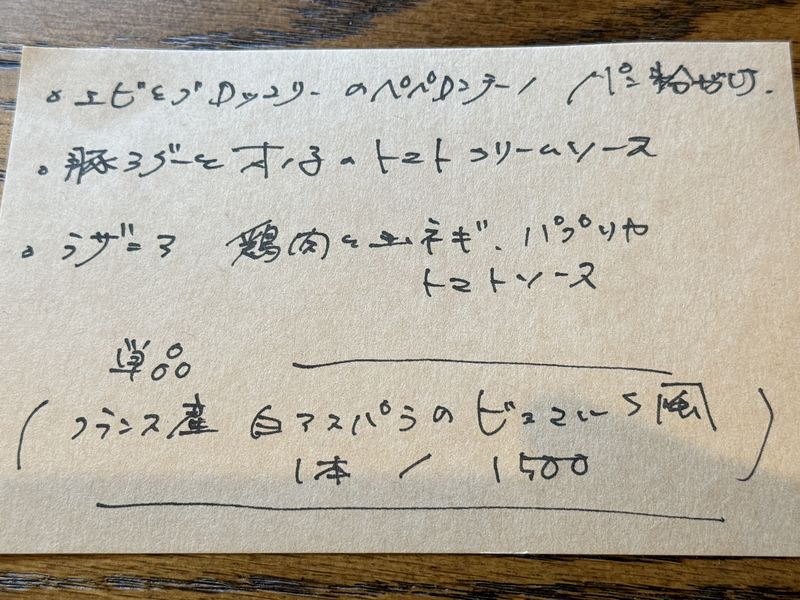 。エビとブロッコリーのペペロンチーノ パン粉がけ.
。豚ラグーと木ノ子のトマトクリームソース
。ラザニア 鶏肉と玉ネギ、パプリカ
トマトソース
単品
(フランス産 白アスパラのビスマルク風)
1本 / 1500